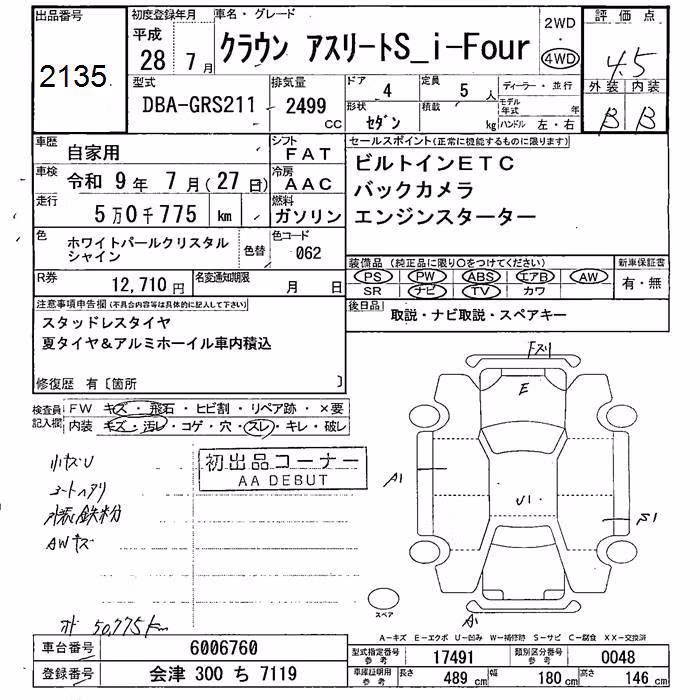 出品番号
2135
初度登録年月
平成
28 7月
車名・グレード
クラウン アスリートS_i-Four
2WD
・
4WD
評価点
4.5
外装 内装
B B
型式
DBA-GRS211
排気量
2499
CC
ドア 4
定員 5 人
ディーラー・並行
形状 セダン
積載 kg
モデル年式 年
ハンドル 左・右
車歴 自家用
シフト FAT
車検 令和 9年 7月(27日)
冷房 AAC
走行 5万0千775 km
燃料 ガソリン
色 ホワイトパールクリスタルシャイン
色替
色コード 062
R券 12,710円
名変通知期限 月 日
セールスポイント(正常に機能するものに限ります)
ビルトインETC
バックカメラ
エンジンスターター
装備品(純正品に限り〇をつけてください)
新車保証書
PS PW ABS エアB AW
SR ナビ TV カワ
有・無
後日品 取説・ナビ取説・スペアキー
注意事項申告欄(不具合内容等は具体的に記入して下さい)
スタッドレスタイヤ
夏タイヤ&アルミホーイル車内積込
修復歴 有〔箇所 〕
検査員記入欄
FW キズ・飛石・ヒビ割・リペア跡・×要
内装 キズ・汚レ・コゲ・穴・スレ・キレ・破レ
初出品コーナー
AA DEBUT
小キズU
コートヘタリ
外装鉄粉
AWキズ
50,775km
Fスリ
E
A1
U1
A1
スペア
A-キズ E-エクボ U-凹み W-補修跡 S-サビ C-腐食 XX-交換済
車台番号 6006760
登録番号 会津 300 ち 7119
型式指定番号 参考 17491
類別区分番号 参考 0048
車庫証明用 参考 長さ 489 cm 幅 180 cm 高さ 146 cm